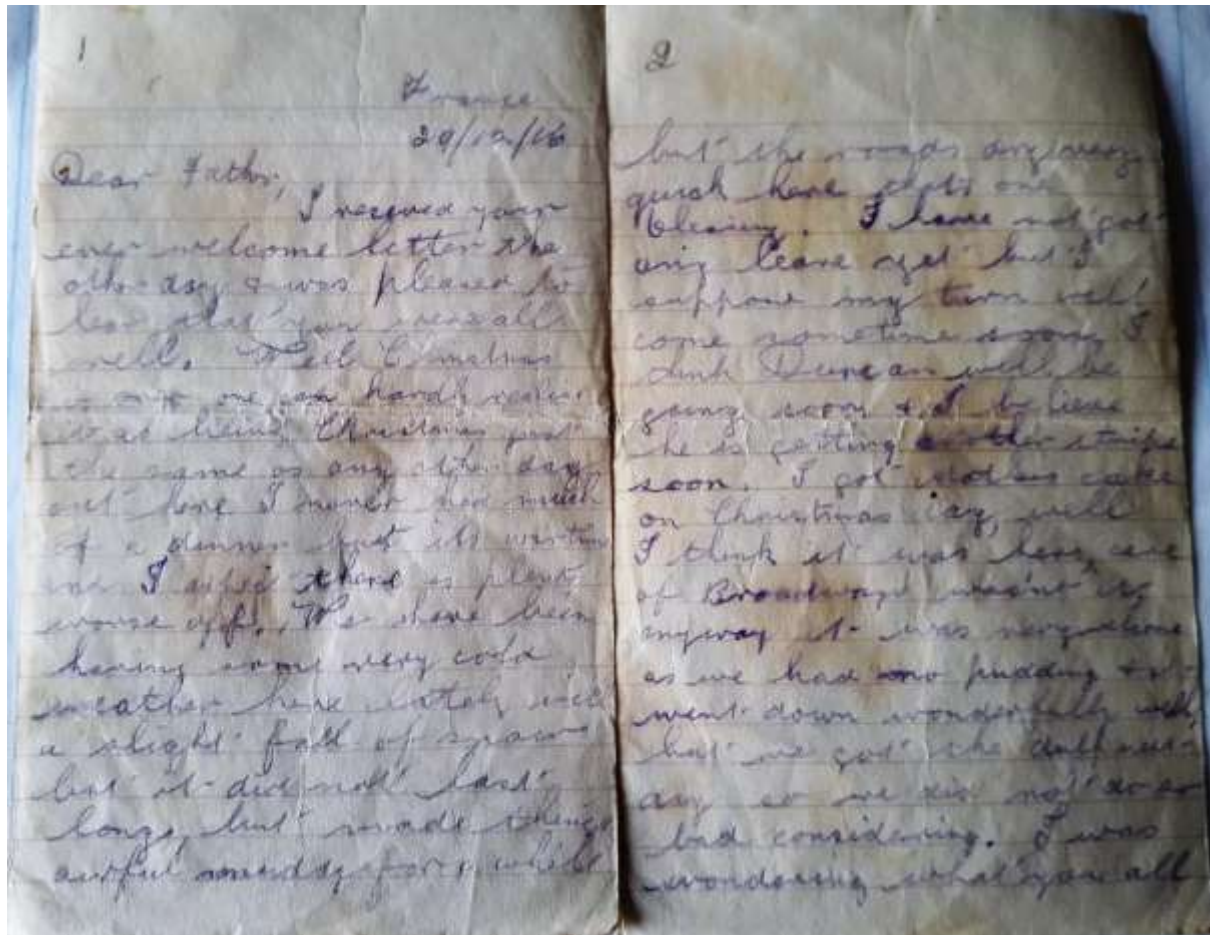 1
France
29/12/16
Dear Father,
I received your
ever welcome letter the
other day & was pleased to
hear that you were all
well. Well Xmas
is over one can hardly realise
it as being Christmas just
the same as any other day
out here I never had much
of a dinner but its war time
I there is plenty
worse off. We have been
having some very cold
weather here lately with
a slight fall of snow
but it did not last
long, but made things
awful muddy for a while
2
but the roads dry very
quick here thats one
blessing. I have not got
any leave yet but I
suppose my turn will
come sometime soon, I
think Duncan will be
going soon & I believe
he is getting another stripe
soon. I got cake
on Christmas day, well
I think it was here, care
of Broadway wasn't it,
anyway it was very
as we had no pudding & it
went down wonderfully well,
but we got the duff next
day so we did not do so
bad considering. I was
wondering what you all